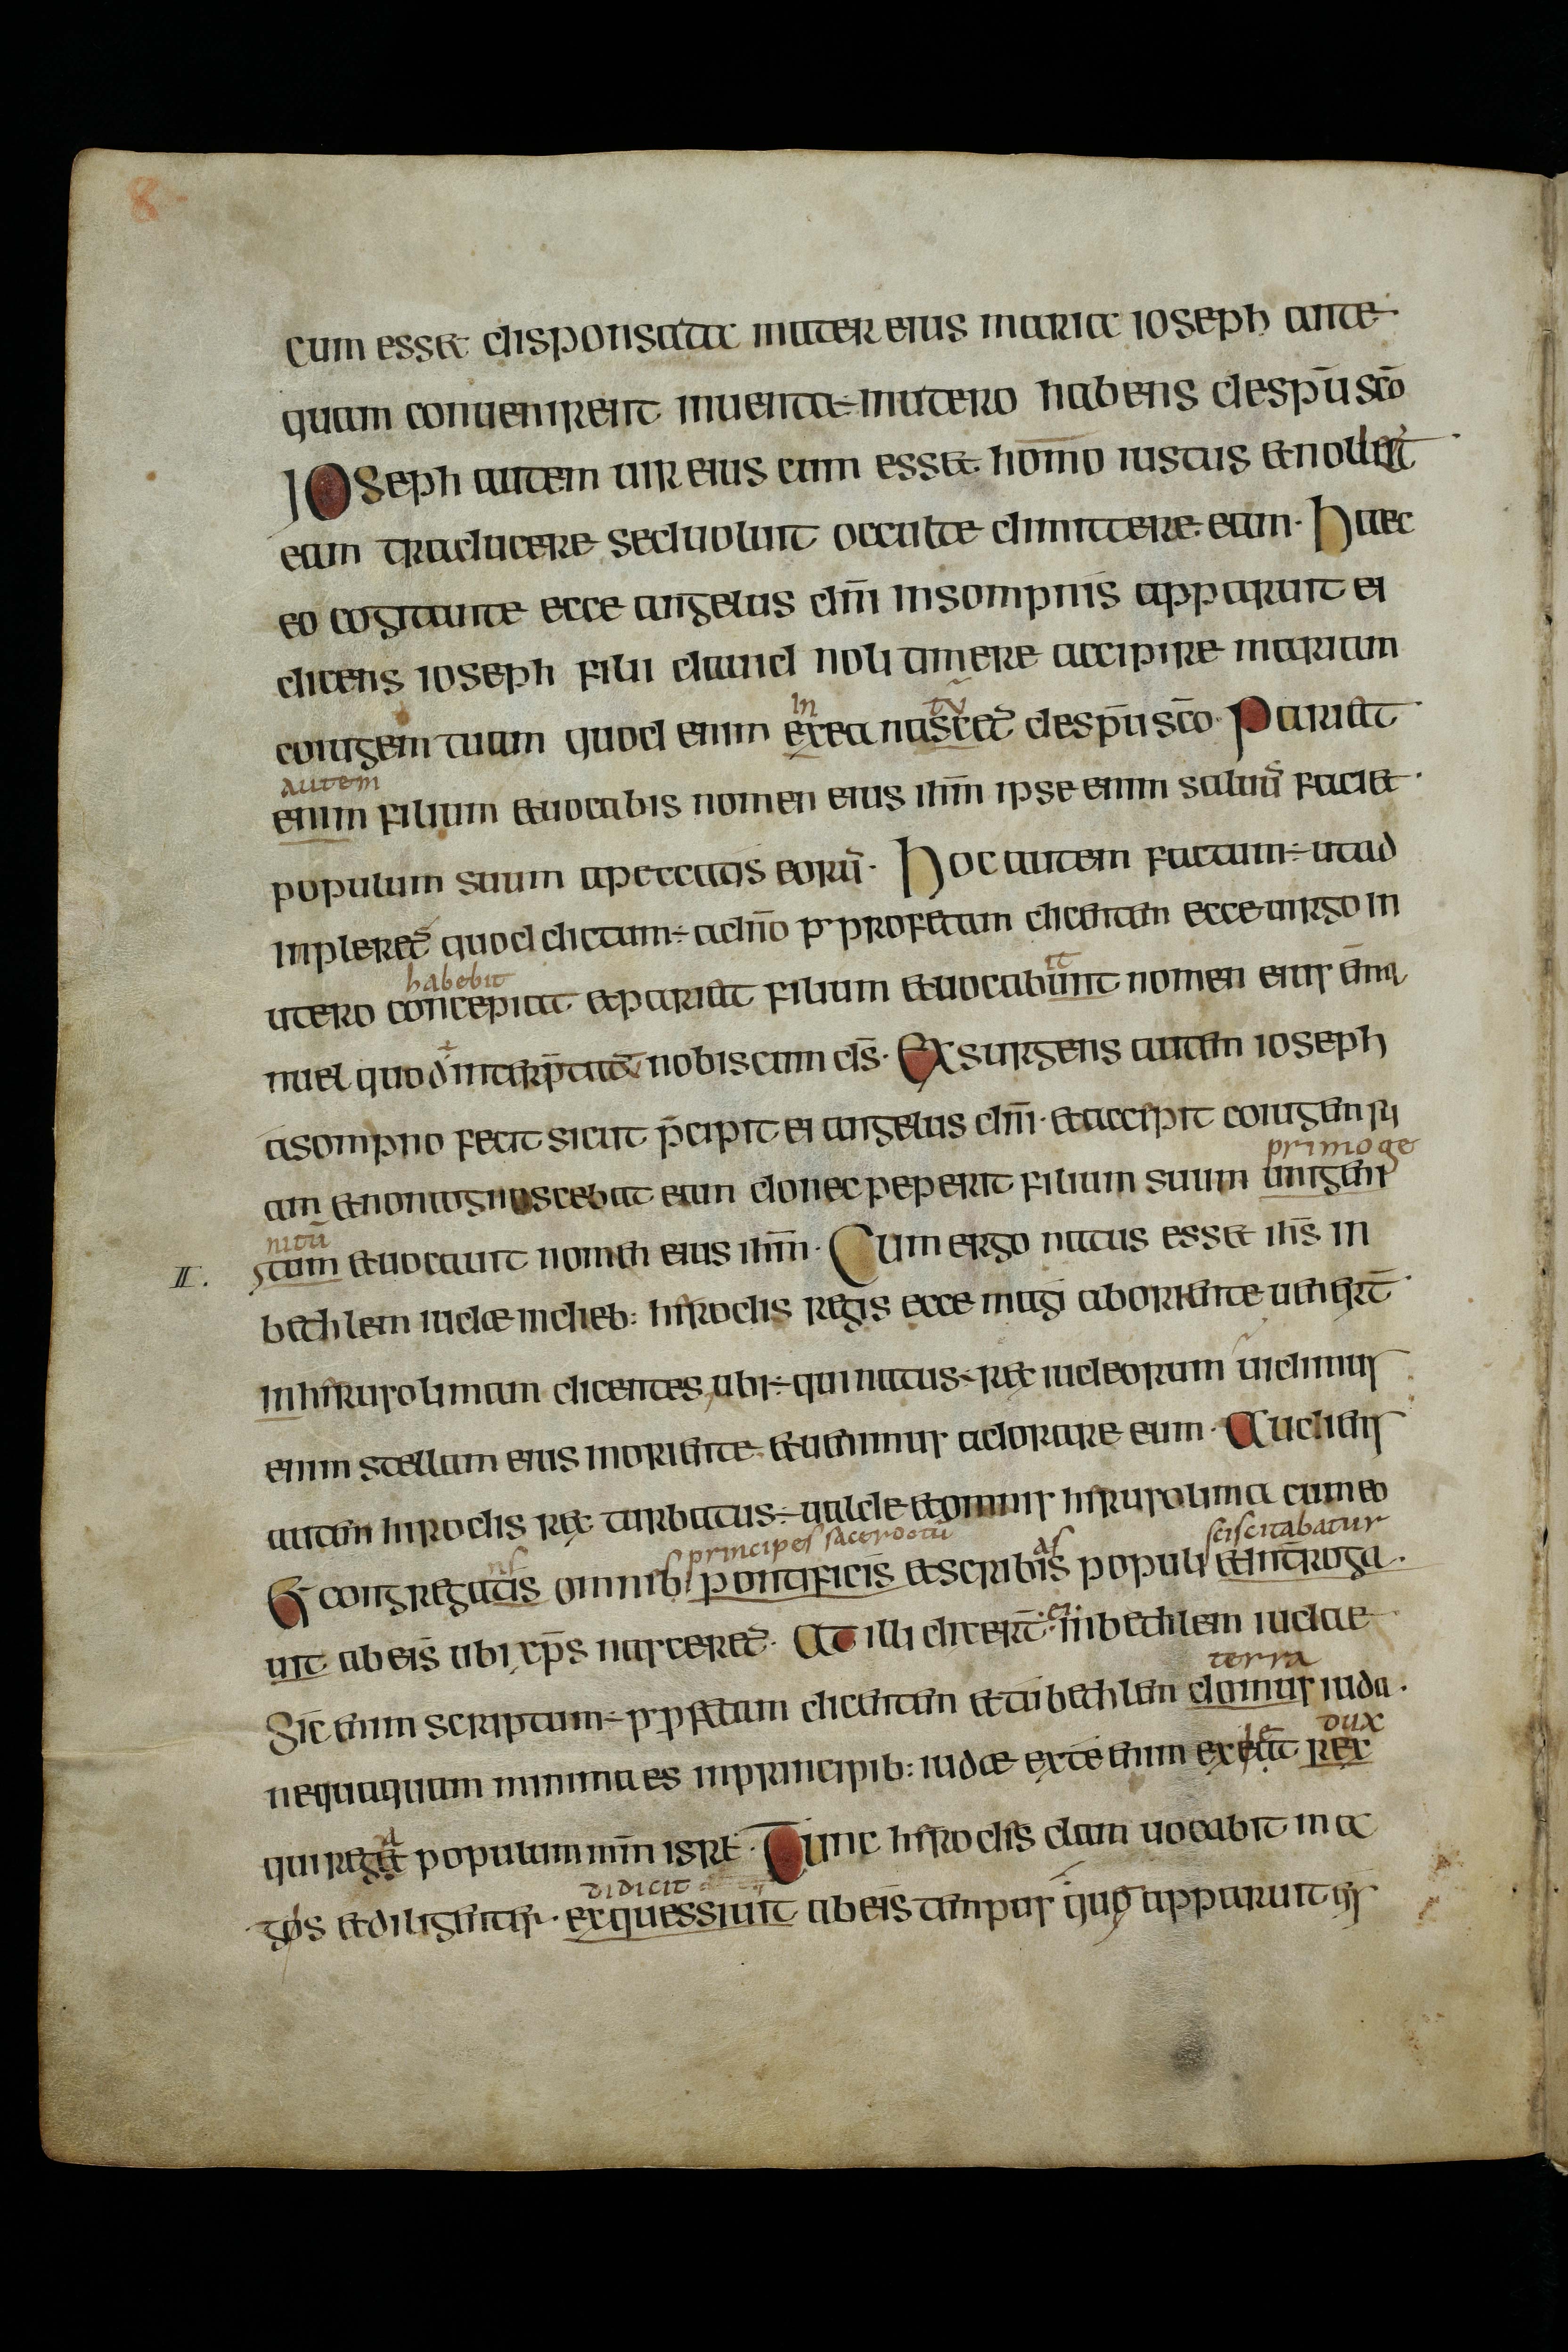 8
cum esset disponsata mater eius maria ioseph ante
quam conuenirent inuenta ÷ in utero habens despū scō
IOseph autem uir eius cum esset homo iustus et nollet
eam traducere sed uoluit occulte dimittere eam · haec
eo cogitante ecce angelus dn̄i in sompnis apparuit ei
dicens ioseph fili dauid noli timere accipire mariam
in tū
coiugem tuam quod enim ex ea nascet̄ despū scō · Pariat
autem
enim filium et uocabis nomen eius ih̄m ipse enim saluū faciet ·
populum suum a peccatis eorū · hoc autem factum ÷ ut ad
inpleret̄ quod dictum ÷ a dn̄o ꝑ profetam dicentem ecce uirgo in
habebit it
utero concepiat et pariat filium et uocabunt nomen eius em̄a
nuel quod interp̄tatur nobiscum ds̄ · Exsurgens autem ioseph
a sompno fecit sicut p̄cipit ei angelus dn̄i · et accipit coiugem su
primoge
am et non cognoscebat eam donec peperit filium suum unigeni
nitū
tum et uocauit nomen eius ih̄m · Cum ergo natus esset ih̄s in
II.
bethlem iudae in dieb: hirodis regis ecce magi ab oriente uenert̄
in hirusolimam dicentes ubi ÷ qui natus ÷ rex iudeorum uidimus
enim stellam eius in oriente et uenimus adorare eum · Audiens
autem hirodis rex turbatus ÷ ualde et omnis hirusolima cum eo
ns principes sacerdotū as sciscitabatur
Et congregatis omnib; pontificis et scribis populi et int̄roga ·
uit ab eis ubi xp̄s nasceret̄ · At illi dicert̄ ei in bethlem iudae
terra
Sic enim scriptum ÷ ꝑ p̄fetam dicentem et tu bethlem domus iuda ·
ie dux
nequaquam minima es in principib: iudae ex te enim exeat rex
a
qui reget populum mm̄ isrl · Tunc hirodis clam uocabit ma
didicit
gos et diligenter · exquessiuit ab eis tempus quo apparuit eis